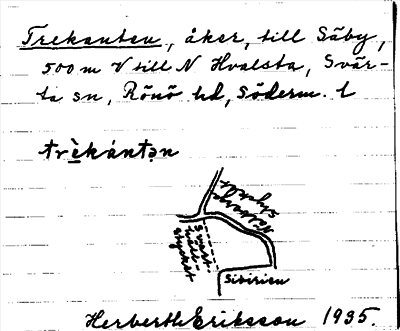 Trekanten, åker, till Säby,
500 m V till N Hvalsta, Svär-
ta sn, Rönö hd, Söderm. l
trè̱kántən
Sibirien
Herberth Eriksson 1935.